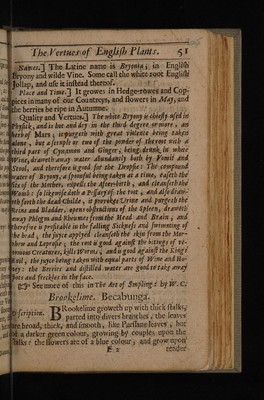 The Vertues of English Plants. 51
Names.] The Latine name is Bryonia; in English
Bryony and wilde Vine. Some call the white root English
Jollap, and use it instead thereof.
Place and Time.] It growes in Hedge-rowes and Cop-
pices in many of our Countreys, and flowers in May, and
the berries be ripe in Autumne.
Quality and Vertues.] The white Bryony is chiefly used in
Physick, and is hot and dry in the third degree or more, an
herb of Mars; it purgeth with great violence being taken
alone, but a scruple or two of the powder of thereof with a
third part of Cynamon and Ginger, being drunk in white
Wine, draweth away water abundantly both by Vomit and
Stool, and therefore is good for the Dropsie: The compound
water of Bryony, a spoonful being taken at a time, easeth the
fits of the Mother, expells the after-birth, and cleanseth the
Womb: so likewise doth a Pessary of the root, and also draw-
eth forth the dead Childe, it provokes Urine and purgeth the
Reins and Bladder, opens obstructions of the Spleen, draweth
away Phlegm and Rheumes from the Head and Brain; and
therefore is profitable in the falling Sickness and swimming of
the head, the juyce applyed cleanseth the skin from the Mor-
phew and Leprosie; the root is good against the bitings of ve-
nemous Creatures, kills Worms, and is good against the Kings
Evil, the juyce being taken with equal parts of Wine and Ho-
ney: the Berries and distilled water are good to take away
spots and freckles in the face.
See more of this in The Art of Simpling: by W. C.
Brookelime. Becabunga.
Description. BRookelime groweth up with thick stalks,
parted into divers branches, the leaves
are broad, thick, and smooth, like Purslane leaves, but
of a darker green colour, growing by couples upon the
stalks: the flowers are of a blue colour, and grow upon
E 2 tender